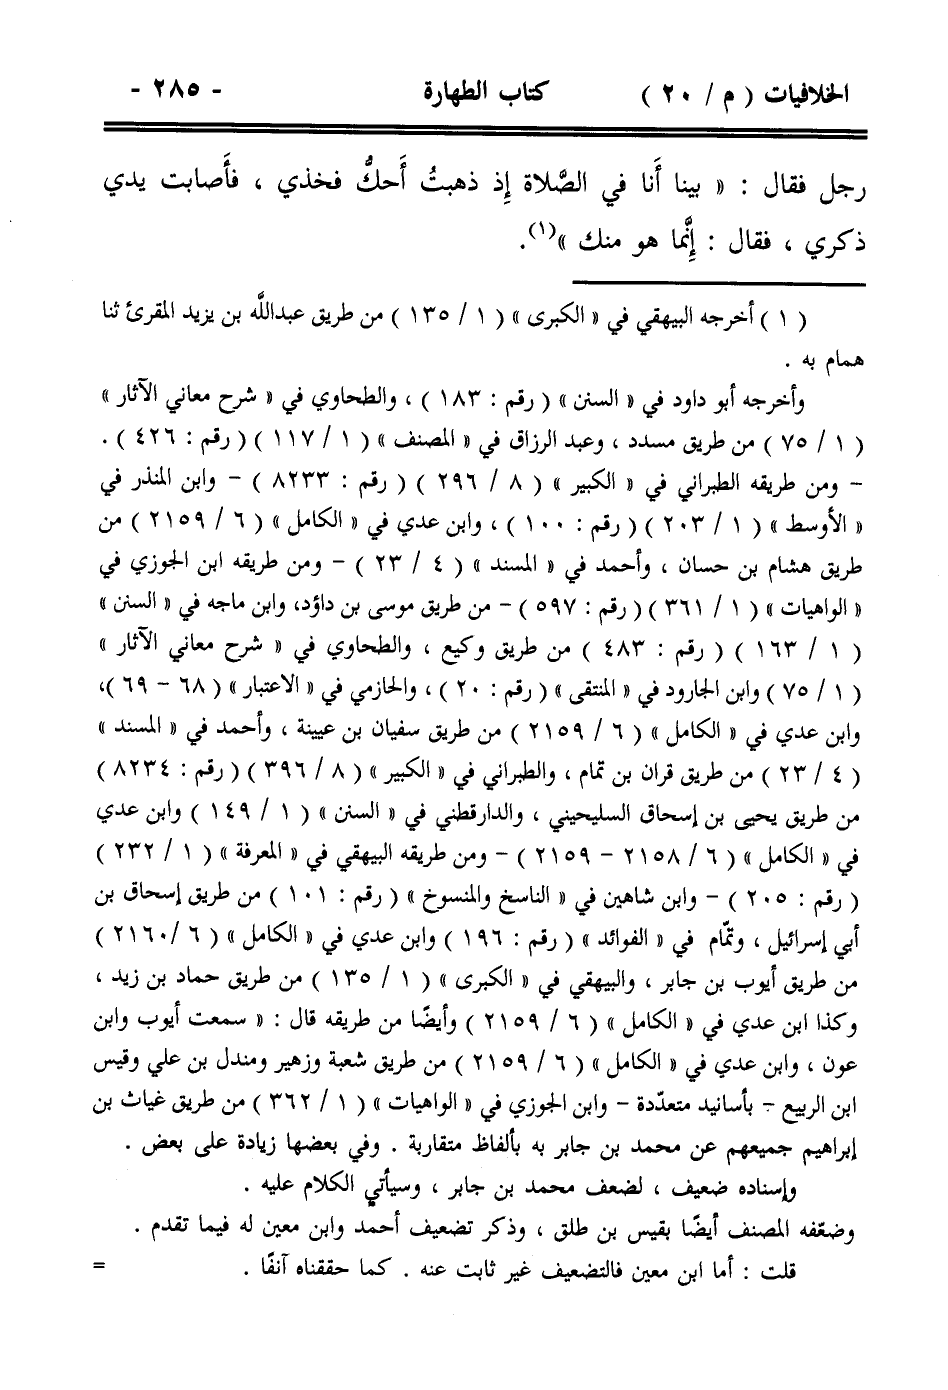 الخلافيات ( م / ٢٠ ) كتاب الطهارة - ٢٨٥ -
رجل فقال : « بينا أَنا في الصَّلاة إِذ ذهبتُ أَحكُّ فخذي ، فأَصابت يدي
ذكري ، فقال : إِنَّما هو منك »(١).
( ١ ) أخرجه البيهقي في « الكبرى » ( ١ / ١٣٥ ) من طريق عبدالله بن يزيد المقرئ ثنا
همام به .
وأخرجه أبو داود في « السنن » ( رقم : ١٨٣ ) ، والطحاوي في « شرح معاني الآثار »
( ١ / ٧٥ ) من طريق مسدد ، وعبد الرزاق في « المصنف » ( ١ / ١١٧ ) ( رقم : ٤٢٦ ) .
- ومن طريقه الطبراني في « الكبير » ( ٨ / ٢٩٦ ) ( رقم : ٨٢٣٣ ) - وابن المنذر في
« الأوسط » ( ١ / ٢٠٣ ) ( رقم : ١٠٠ ) ، وابن عدي في « الكامل » ( ٦ / ٢١٥٩ ) من
طريق هشام بن حسان ، وأحمد في « المسند » ( ٤ / ٢٣ ) - ومن طريقه ابن الجوزي في
« الواهيات » ( ١ / ٣٦١ ) ( رقم : ٥٩٧ ) - من طريق موسى بن داؤد، وابن ماجه في « السنن »
( ١ / ١٦٣ ) ( رقم : ٤٨٣ ) من طريق وكيع ، والطحاوي في « شرح معاني الآثار »
( ١ / ٧٥ ) وابن الجارود في « المنتقى » ( رقم : ٢٠ ) ، والحازمي في « الاعتبار » ( ٦٨ - ٦٩ )،
وابن عدي في « الكامل » ( ٦ / ٢١٥٩ ) من طريق سفيان بن عيينة ، وأحمد في « المسند »
( ٤ / ٢٣ ) من طريق قران بن تمام ، والطبراني في « الكبير » ( ٨ / ٣٩٦ ) ( رقم : ٨٢٣٤ )
من طريق يحيى بن إسحاق السليحيني ، والدارقطني في « السنن » ( ١ / ١٤٩ ) وابن عدي
في « الكامل » ( ٦ / ٢١٥٨ - ٢١٥٩ ) - ومن طريقه البيهقي في « المعرفة » ( ١ / ٢٣٢ )
( رقم : ٢٠٥ ) - وابن شاهين في « الناسخ والمنسوخ » ( رقم : ١٠١ ) من طريق إسحاق بن
أبي إسرائيل ، وتمّام في « الفوائد » ( رقم : ١٩٦ ) وابن عدي في « الكامل » ( ٦ / ٢١٦٠ )
من طريق أيوب بن جابر ، والبيهقي في « الكبرى » ( ١ / ١٣٥ ) من طريق حماد بن زيد ،
وكذا ابن عدي في « الكامل » ( ٦ / ٢١٥٩ ) وأيضًا من طريقه قال : « سمعت أيوب وابن
عون ، وابن عدي في « الكامل » ( ٦ / ٢١٥٩ ) من طريق شعبة وزهير ومندل بن علي وقيس
ابن الربيع - بأسانيد متعدّدة - وابن الجوزي في « الواهيات » ( ١ / ٣٦٢ ) من طريق غياث بن
إبراهيم جميعهم عن محمد بن جابر به بألفاظ متقاربة . وفي بعضها زيادة على بعض .
وإسناده ضعيف ، لضعف محمد بن جابر ، وسيأتي الكلام عليه .
وضعّفه المصنف أيضًا بقيس بن طلق ، وذكر تضعيف أحمد وابن معين له فيما تقدم .
قلت : أما ابن معين فالتضعيف غير ثابت عنه . كما حققناه آنفًا . =